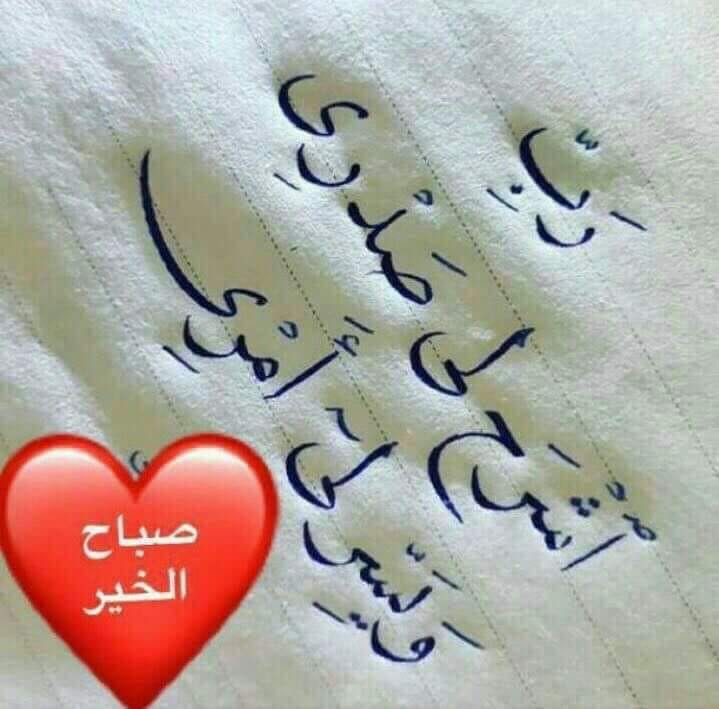 رَبِّ
اشْرَحْ لِى صَدْرِى
وَيَسِّرْ لِى أَمْرِى
صباح
الخير